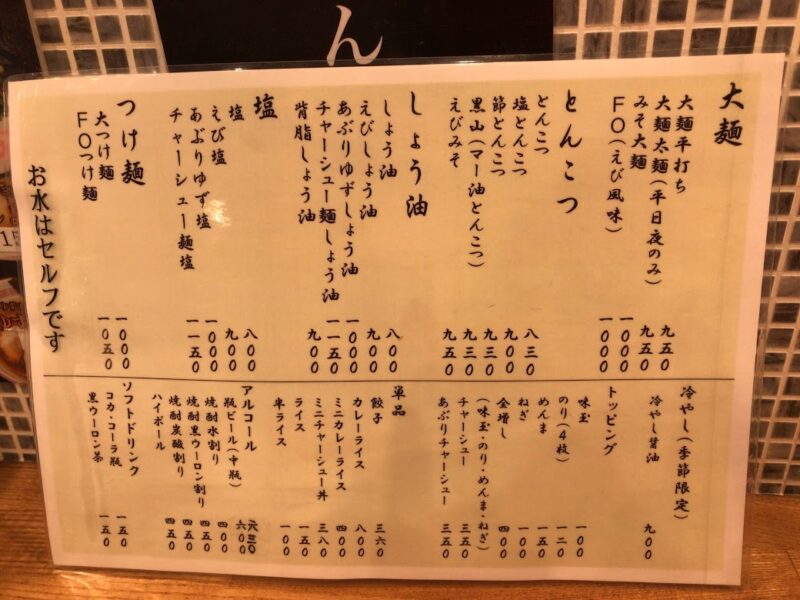 ん
大麺
大麺平打ち 九五〇
大麺太麺(平日夜のみ) 九五〇
みそ大麺 一〇〇〇
FO(えび風味) 一〇〇〇
とんこつ
とんこつ 八三〇
塩とんこつ 九〇〇
節とんこつ 九三〇
黒山(マー油とんこつ) 九三〇
えびみそ 九五〇
しょう油
しょう油 八〇〇
えびしょう油 九〇〇
あぶりゆずしょう油 一〇〇〇
チャーシュー麺しょう油 一一五〇
背脂しょう油 九〇〇
塩
塩 八〇〇
えび塩 九〇〇
あぶりゆず塩 一〇〇〇
チャーシュー麺塩 一一五〇
つけ麺
大つけ麺 一〇〇〇
FOつけ麺 一〇五〇
お水はセルフです
冷やし(季節限定)
冷やし醤油 九〇〇
トッピング
味玉 一〇〇
のり(4枚) 一二〇
めんま 一五〇
ねぎ 一〇〇
全増し 四〇〇
(味玉・のり・めんま・ねぎ)
チャーシュー 三五〇
あぶりチャーシュー 三五〇
単品
餃子 三六〇
カレーライス 八〇〇
ミニカレーライス 四〇〇
ミニチャーシュー丼 三八〇
ライス 一五〇
半ライス 一〇〇
アルコール
瓶ビール(中瓶) 六〇〇
焼酎水割り 四〇〇
焼酎黒ウーロン割り 四五〇
焼酎炭酸割り 四五〇
ハイボール 四五〇
ソフトドリンク
コカ・コーラ瓶 一五〇
黒ウーロン茶 一五〇